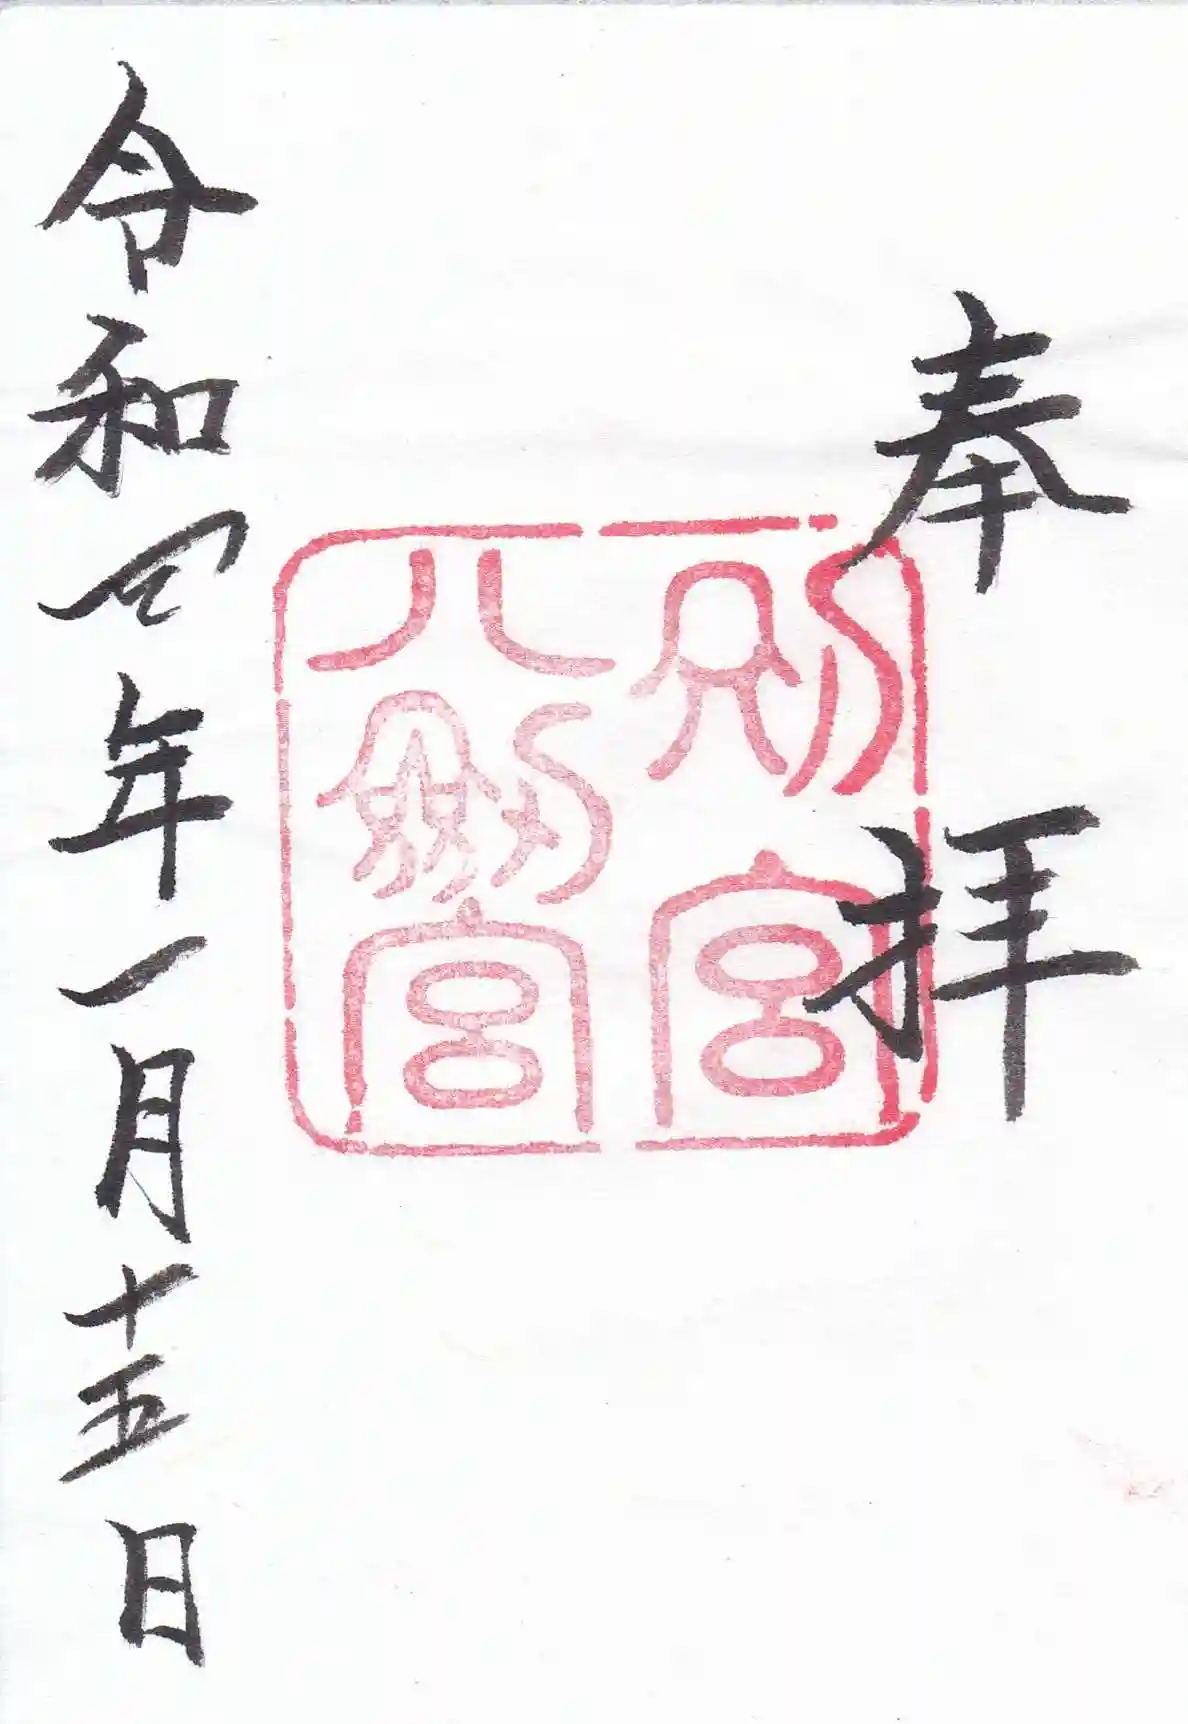 奉拝
別宮
八劔宮
令和四年一月十五日